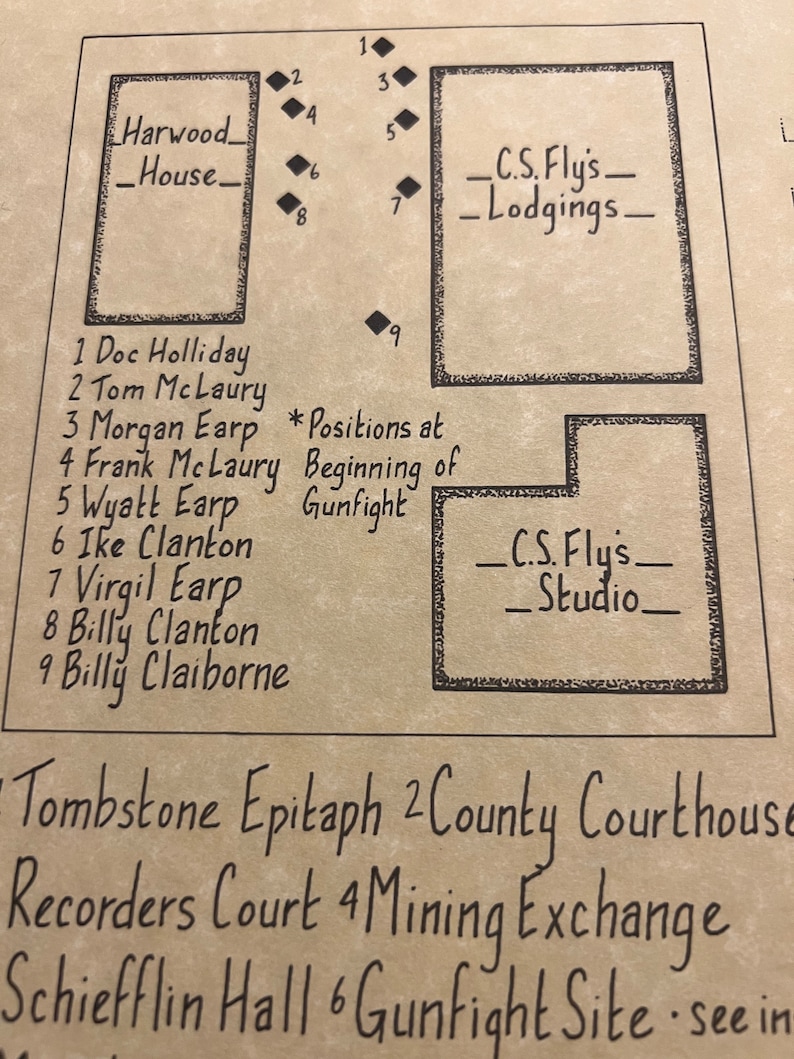 1
2
3
4
5
6
7
8
9
Harwood
House
C.S. Fly's
Lodgings
1 Doc Holliday
2 Tom McLaury
3 Morgan Earp
4 Frank McLaury
5 Wyatt Earp
6 Ike Clanton
7 Virgil Earp
8 Billy Clanton
9 Billy Claiborne
*Positions at
Beginning of
Gunfight
C.S. Fly's
Studio
Tombstone Epitaph 2 County Courthouse
Recorders Court 4 Mining Exchange
Schiefflin Hall 6 Gunfight Site · see in